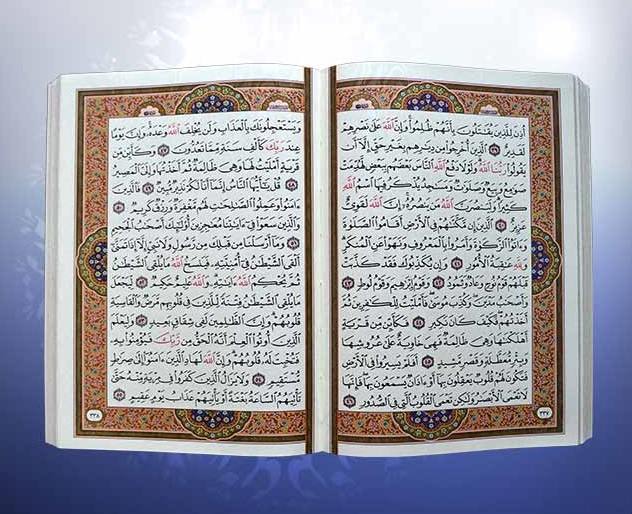 أُذِنَ لِلَّذِينَ يُقَٰتَلُونَ بِأَنَّهُمْ ظُلِمُوا۟ وَإِنَّ ٱللَّهَ عَلَىٰ نَصْرِهِمْ
لَقَدِيرٌ ٣٩ ٱلَّذِينَ أُخْرِجُوا۟ مِن دِيَٰرِهِم بِغَيْرِ حَقٍّ إِلَّآ أَن
يَقُولُوا۟ رَبُّنَا ٱللَّهُ وَلَوْلَا دَفْعُ ٱللَّهِ ٱلنَّاسَ بَعْضَهُم بِبَعْضٍ لَّهُدِّمَتْ
صَوَٰمِعُ وَبِيَعٌ وَصَلَوَٰتٌ وَمَسَٰجِدُ يُذْكَرُ فِيهَا ٱسْمُ ٱللَّهِ
كَثِيرًا وَلَيَنصُرَنَّ ٱللَّهُ مَن يَنصُرُهُۥٓ إِنَّ ٱللَّهَ لَقَوِىٌّ
عَزِيزٌ ٤٠ ٱلَّذِينَ إِن مَّكَّنَّٰهُمْ فِى ٱلْأَرْضِ أَقَامُوا۟ ٱلصَّلَوٰةَ
وَءَاتَوُا۟ ٱلزَّكَوٰةَ وَأَمَرُوا۟ بِٱلْمَعْرُوفِ وَنَهَوْا۟ عَنِ ٱلْمُنكَرِ
وَلِلَّهِ عَٰقِبَةُ ٱلْأُمُورِ ٤١ وَإِن يُكَذِّبُوكَ فَقَدْ كَذَّبَتْ
قَبْلَهُمْ قَوْمُ نُوحٍ وَعَادٌ وَثَمُودُ ٤٢ وَقَوْمُ إِبْرَٰهِيمَ وَقَوْمُ لُوطٍ ٤٣
وَأَصْحَٰبُ مَدْيَنَ وَكُذِّبَ مُوسَىٰ فَأَمْلَيْتُ لِلْكَٰفِرِينَ ثُمَّ
أَخَذْتُهُمْ فَكَيْفَ كَانَ نَكِيرِ ٤٤ فَكَأَيِّن مِّن قَرْيَةٍ
أَهْلَكْنَٰهَا وَهِىَ ظَالِمَةٌ فَهِىَ خَاوِيَةٌ عَلَىٰ عُرُوشِهَا
وَبِئْرٍ مُّعَطَّلَةٍ وَقَصْرٍ مَّشِيدٍ ٤٥ أَفَلَمْ يَسِيرُوا۟ فِى ٱلْأَرْضِ
فَتَكُونَ لَهُمْ قُلُوبٌ يَعْقِلُونَ بِهَآ أَوْ ءَاذَانٌ يَسْمَعُونَ بِهَا فَإِنَّهَا
لَا تَعْمَى ٱلْأَبْصَٰرُ وَلَٰكِن تَعْمَى ٱلْقُلُوبُ ٱلَّتِى فِى ٱلصُّدُورِ ٤٦
٣٣٧
وَيَسْتَعْجِلُونَكَ بِٱلْعَذَابِ وَلَن يُخْلِفَ ٱللَّهُ وَعْدَهُۥ وَإِنَّ يَوْمًا
عِندَ رَبِّكَ كَأَلْفِ سَنَةٍ مِّمَّا تَعُدُّونَ ٤٧ وَكَأَيِّن مِّن
قَرْيَةٍ أَمْلَيْتُ لَهَا وَهِىَ ظَالِمَةٌ ثُمَّ أَخَذْتُهَا وَإِلَىَّ ٱلْمَصِيرُ
٤٨ قُلْ يَٰٓأَيُّهَا ٱلنَّاسُ إِنَّمَآ أَنَا۠ لَكُمْ نَذِيرٌ مُّبِينٌ ٤٩ فَٱلَّذِينَ
ءَامَنُوا۟ وَعَمِلُوا۟ ٱلصَّٰلِحَٰتِ لَهُم مَّغْفِرَةٌ وَرِزْقٌ كَرِيمٌ ٥٠
وَٱلَّذِينَ سَعَوْا۟ فِىٓ ءَايَٰتِنَا مُعَٰجِزِينَ أُو۟لَٰٓئِكَ أَصْحَٰبُ ٱلْجَحِيمِ
٥١ وَمَآ أَرْسَلْنَا مِن قَبْلِكَ مِن رَّسُولٍ وَلَا نَبِىٍّ إِلَّآ إِذَا تَمَنَّىٰٓ
أَلْقَى ٱلشَّيْطَٰنُ فِىٓ أُمْنِيَّتِهِۦ فَيَنسَخُ ٱللَّهُ مَا يُلْقِى ٱلشَّيْطَٰنُ
ثُمَّ يُحْكِمُ ٱللَّهُ ءَايَٰتِهِۦ وَٱللَّهُ عَلِيمٌ حَكِيمٌ ٥٢ لِّيَجْعَلَ
مَا يُلْقِى ٱلشَّيْطَٰنُ فِتْنَةً لِّلَّذِينَ فِى قُلُوبِهِم مَّرَضٌ وَٱلْقَاسِيَةِ
قُلُوبُهُمْ وَإِنَّ ٱلظَّٰلِمِينَ لَفِى شِقَاقٍۭ بَعِيدٍ ٥٣ وَلِيَعْلَمَ
ٱلَّذِينَ أُوتُوا۟ ٱلْعِلْمَ أَنَّهُ ٱلْحَقُّ مِن رَّبِّكَ فَيُؤْمِنُوا۟ بِهِۦ
فَتُخْبِتَ لَهُۥ قُلُوبُهُمْ وَإِنَّ ٱللَّهَ لَهَادِ ٱلَّذِينَ ءَامَنُوٓا۟ إِلَىٰ صِرَٰطٍ
مُّسْتَقِيمٍ ٥٤ وَلَا يَزَالُ ٱلَّذِينَ كَفَرُوا۟ فِى مِرْيَةٍ مِّنْهُ حَتَّىٰ
تَأْتِيَهُمُ ٱلسَّاعَةُ بَغْتَةً أَوْ يَأْتِيَهُمْ عَذَابُ يَوْمٍ عَقِيمٍ ٥٥
٣٣٨